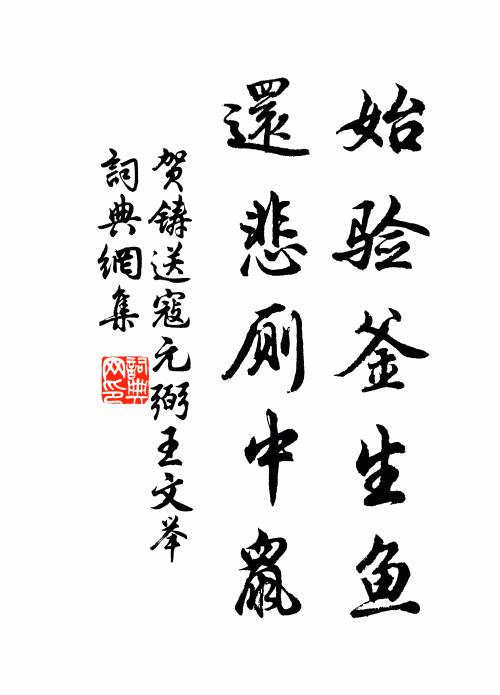 始验釜生鱼
還悲厠中鼠
贺鑄送寇元弼王文举
詞典網集
詞典
网印